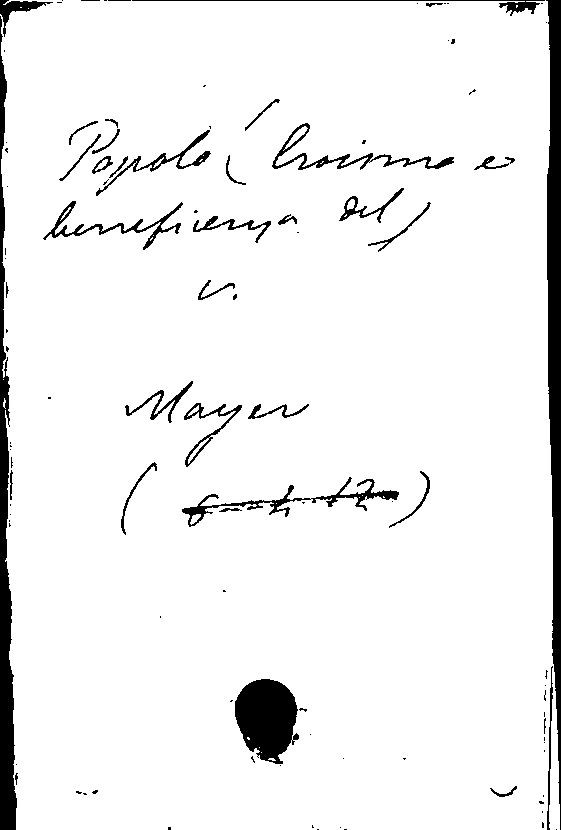 Popolo (Eroismo e
beneficenza del)
v.
Mayer